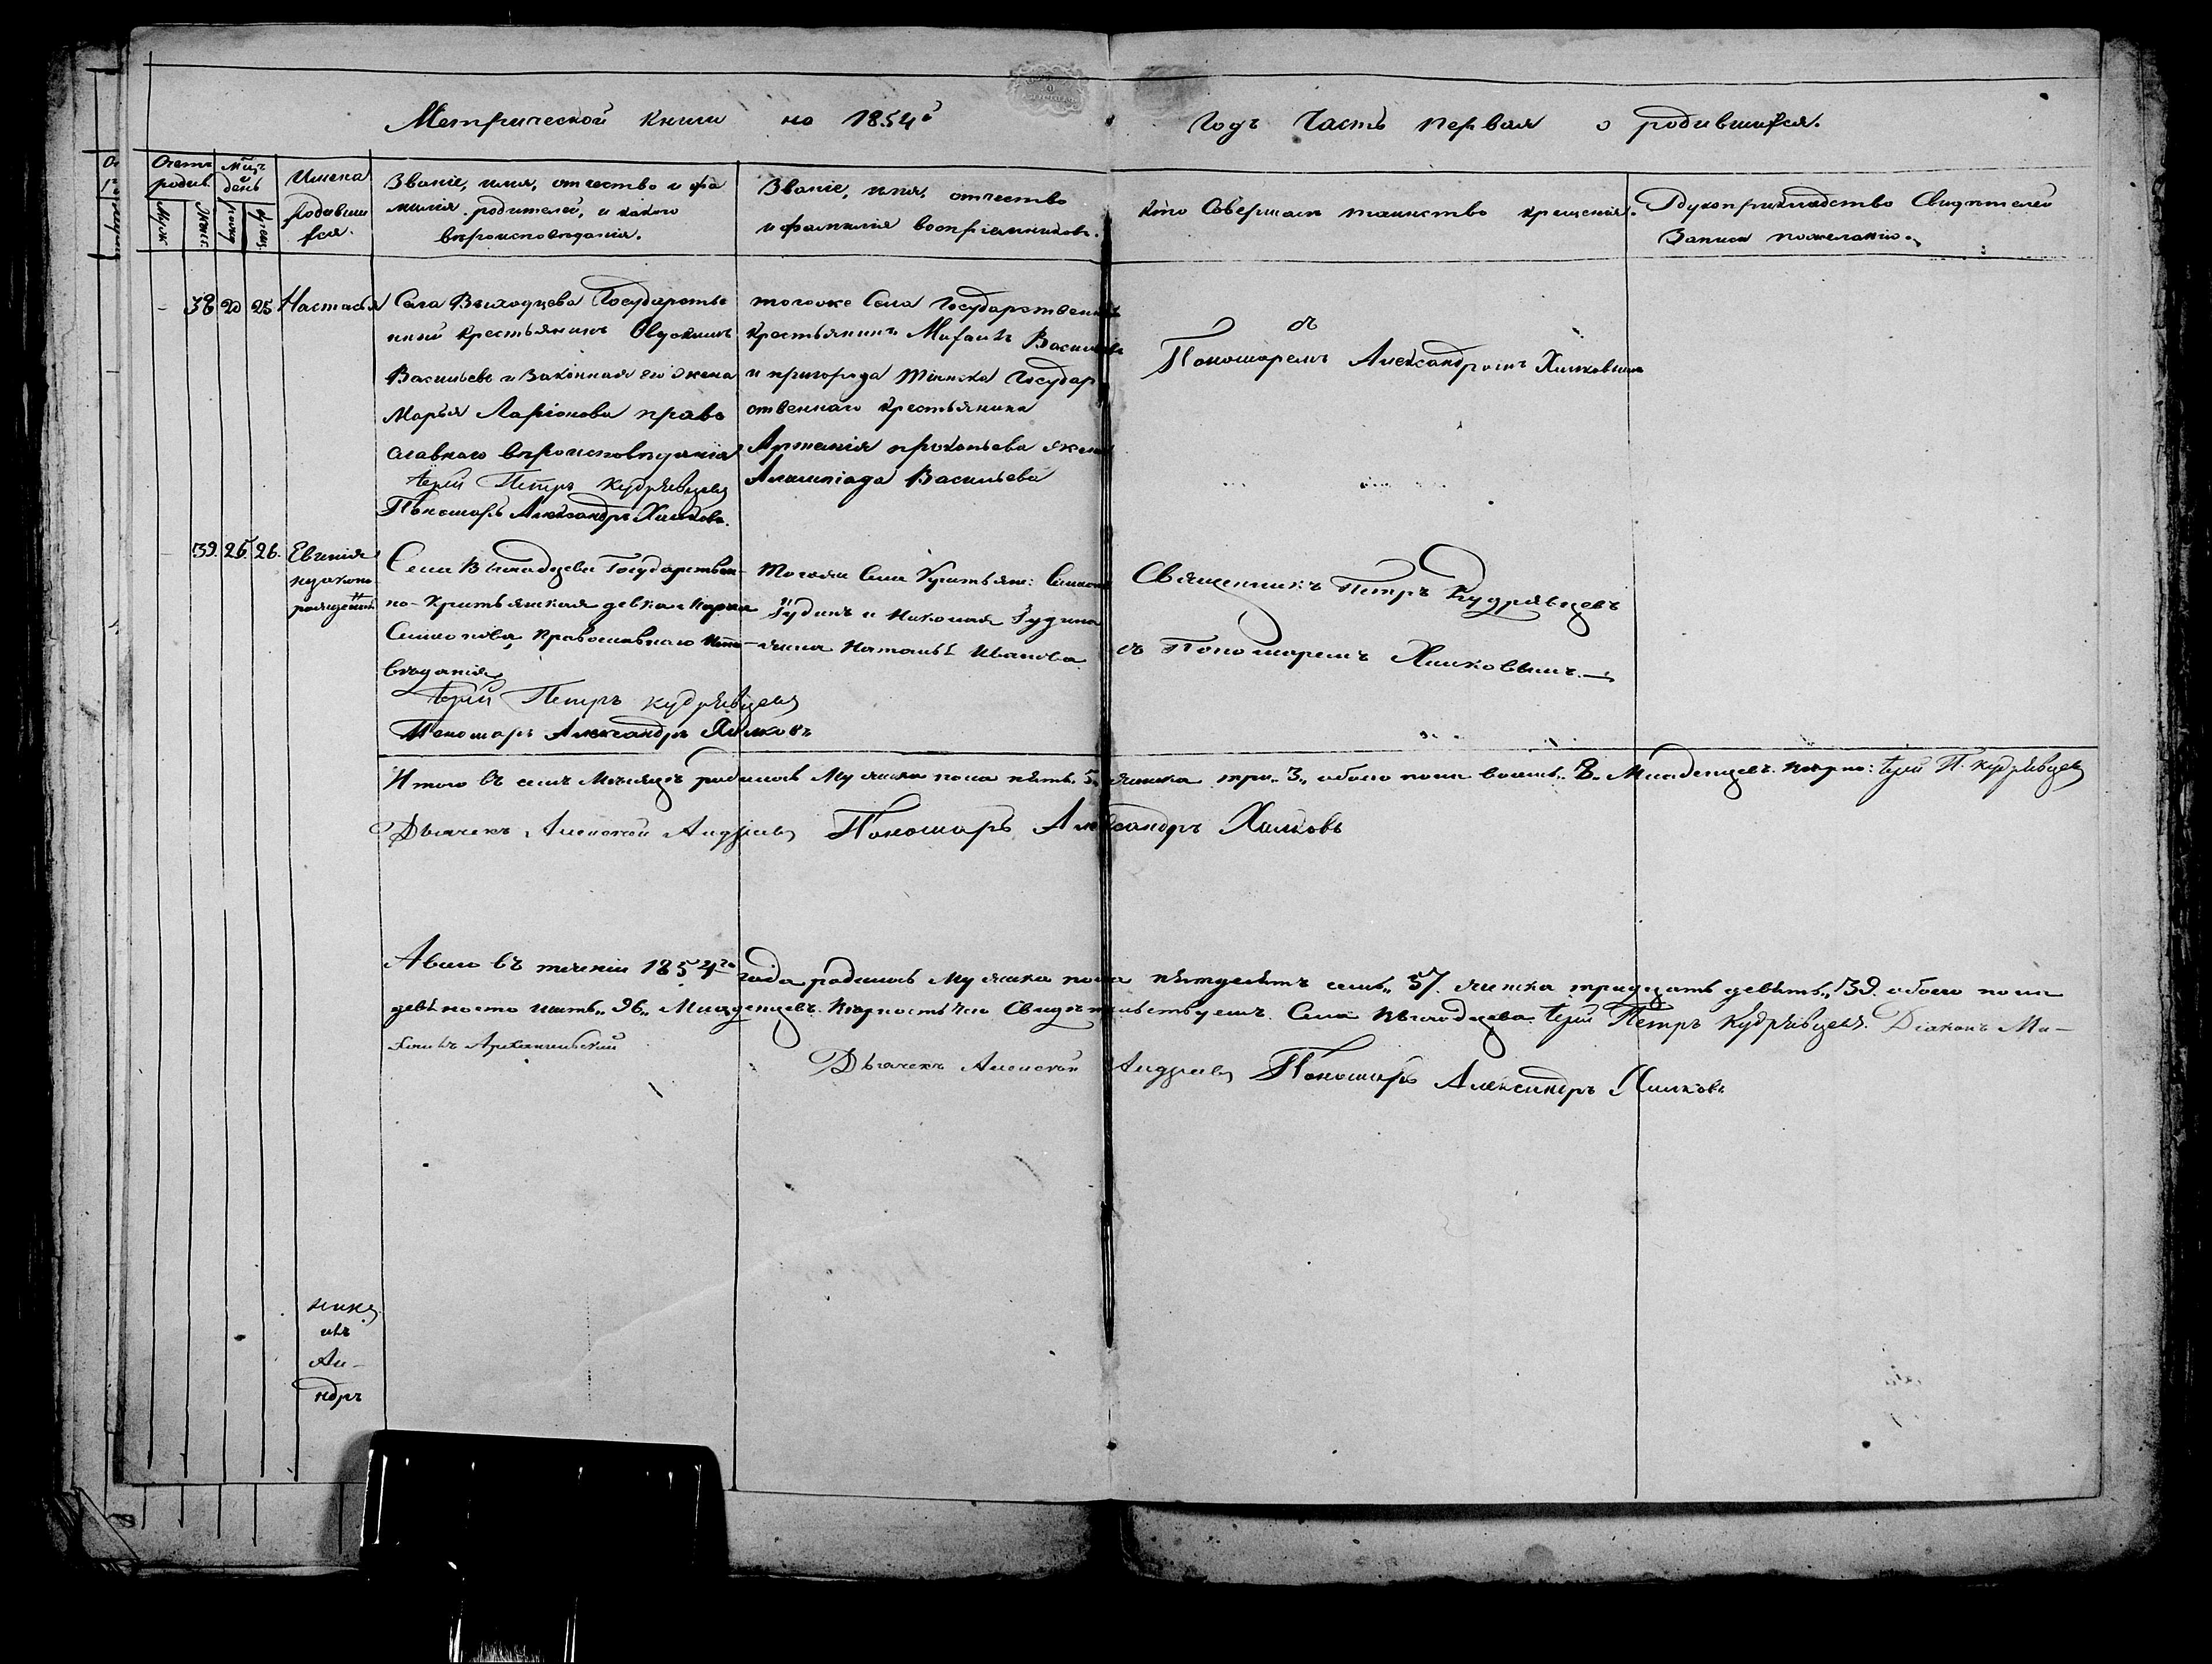 Метрической книги на 1854й годъ часть первая о родившихся.
Счетъ родив. Муж. Женс:
Мцъ и день рожд крещ
Имена родивши хся.
Званіе, имя, отчество и фа
милія родителей, и какого
вѣроисповѣданія.
Званіе, имя, отчество
и фамилія воспріемниковъ.
Кто Совершалъ таинство крещенія.
Рукоприкладство Свидѣтелей
Записи по желанію.
38 20 25 Настасья
Села Выходцева Государстве
нный крестьянинъ Овдокимъ
Васильевъ и Законная его жена
Марья Ларіонова право
славнаго вѣроисповѣданія
Іерей Петръ Кудрявцевъ
Пономарь Александръ Хилковъ.
тогоже Села Государственный
крестьянинъ Михаилъ Васильевъ
и пригорода Тіинска Государ
ственнаго крестьянина
прокопьева жена
Васильева
съ
Пономаремъ Александромъ Хилковымъ
39. 25. 26. Евгенія
незаконо
рожденн
Села Выходцева Государствен-
но-Крестьянская девка Марья
Симонова, Православнаго Испо-
вѣданія
Іерей Петръ Кудрявцевъ
Пономарь Александръ Хилковъ
Тогоже Села Крестьяне: Симонъ
Гудинъ и Николая Гудина
жена Наталья Иванова
Священникъ Петръ Кудрявцевъ
съ Пономаремъ Хилковымъ.
Итого въ семъ Мѣсяцѣ родилось Мужеска пола пять „5„ женска три „3„ обоего пола восемь „8„ Младенцевъ. Вѣрно: Іерей П. Кудрявцевъ
Дьячекъ Алексей Андреевъ Пономарь Александръ Хилковъ
А всего въ теченіи 1854го года родилось Мужеска пола пятдесятъ семь „57. женска тридцать девять „39. обоего пола
девяносто шесть „96„ Младенцевъ. Вѣрность чего Свидѣтельствуемъ. Села Выходцева Іерей Петръ Кудрявцевъ. Діаконъ Ми-
хаилъ Архангельскій
Дьячекъ Алексей Андреевъ Пономарь Александръ Хилковъ
илъ
Ан-
ндръ